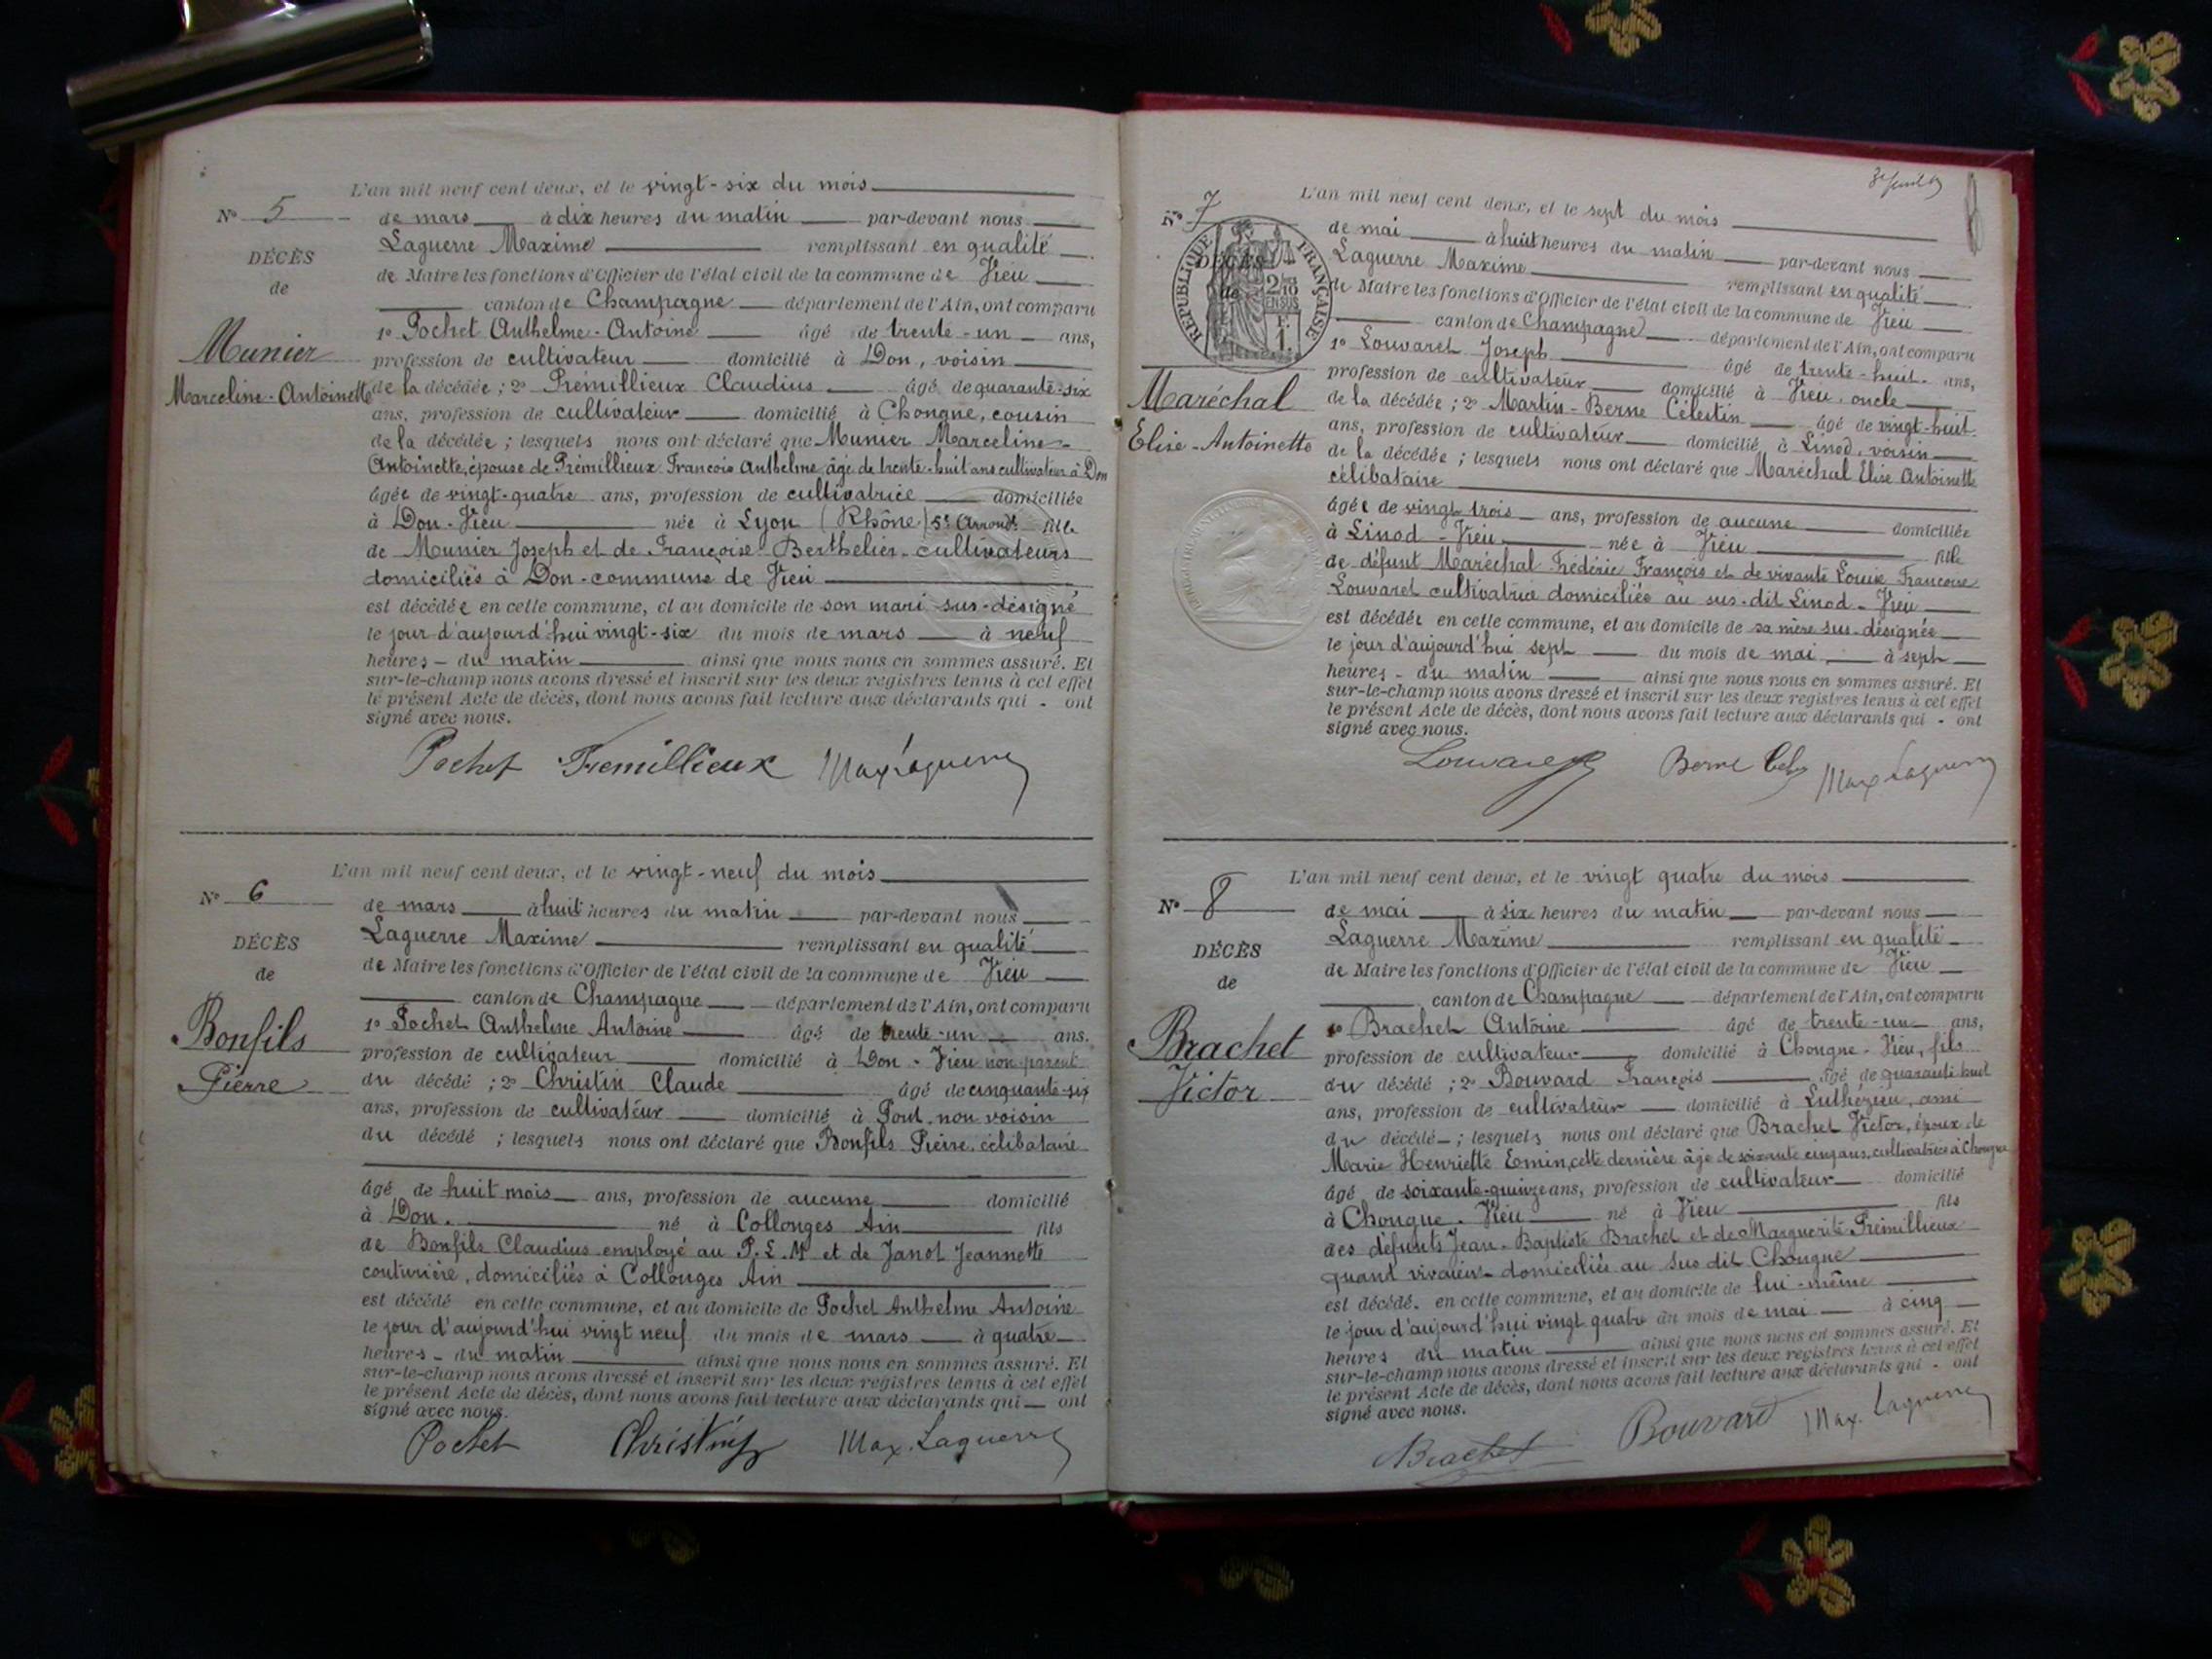 L'an mil neuf cent deux, et le vingt-six du mois
N° 5
de mars à dix heures du matin par-devant nous
Laguerre Maxime remplissant en qualité
DÉCÈS
de Maire les fonctions d'Officier de l'état civil de la commune de Vieu
de
canton de Champagne département de l'Ain, ont comparu
1° Pochet Anthelme-Antoine âgé de trente-un ans,
Munier
profession de cultivateur domicilié à Don, voisin
Marceline-Antoinette
de la décédée ; 2° Prémillieux Claudius âgé de quarante-six
ans, profession de cultivateur domicilié à Chongne, cousin
de la décédée ; lesquels nous ont déclaré que Munier Marceline-
Antoinette, épouse de Prémillieux François Anthelme, âgé de trente-huit ans cultivateur à Don
âgée de vingt-quatre ans, profession de cultivatrice domiciliée
à Don-Vieu née à Lyon (Rhône) 5e Arrondt fille
de Munier Joseph et de Françoise Berthelier-cultivateurs
domiciliés à Don-commune de Vieu
est décédée en cette commune, et au domicile de son mari sus-désigné
le jour d'aujourd'hui vingt-six du mois de mars à neuf
heures - du matin ainsi que nous nous en sommes assuré. Et
sur-le-champ nous avons dressé et inscrit sur les deux registres tenus à cet effet
le présent Acte de décès, dont nous avons fait lecture aux déclarants qui - ont
signé avec nous.
Pochet Premillieux Max Laguerre
L'an mil neuf cent deux, et le vingt-neuf du mois
N° 6
de mars à huit heures du matin par-devant nous
Laguerre Maxime remplissant en qualité
DÉCÈS
de Maire les fonctions d'Officier de l'état civil de la commune de Vieu
de
canton de Champagne département de l'Ain, ont comparu
1° Pochet Anthelme Antoine âgé de trente-un ans.
Bonfils
profession de cultivateur domicilié à Don-Vieu non parent
Pierre
du décédé ; 2° Christin Claude âgé de cinquante-six
ans, profession de cultivateur domicilié à Pont, non voisin
du décédé ; lesquels nous ont déclaré que Bonfils Pierre, célibataire
âgé de huit mois ans, profession de aucune domicilié
à Don. né à Collonges Ain fils
de Bonfils Claudius employé au P.L.M et de Janot Jeannette
couturière, domiciliés à Collonges Ain
est décédé en cette commune, et au domicile de Pochet Anthelme Antoine
le jour d'aujourd'hui vingt neuf du mois de mars à quatre
heures - du matin ainsi que nous nous en sommes assuré. Et
sur-le-champ nous avons dressé et inscrit sur les deux registres tenus à cet effet
le présent Acte de décès, dont nous avons fait lecture aux déclarants qui ont
signé avec nous.
Pochet Christin Max. Laguerre
L'an mil neuf cent deux, et le sept du mois
N° 7
de mai à huit heures du matin par-devant nous
Laguerre Maxime remplissant en qualité
DÉCÈS
de
RÉPUBLIQUE FRANÇAISE
2/10 EN SUS
F. 1.
de Maire les fonctions d'Officier de l'état civil de la commune de Vieu
canton de Champagne département de l'Ain, ont comparu
1° Louvaret Joseph âgé de trente-huit. ans,
profession de cultivateur domicilié à Vieu, oncle
Maréchal
de la décédée ; 2° Martin-Berne Célestin âgé de vingt-huit
Elise-Antoinette
ans, profession de cultivateur domicilié à Linod, voisin
de la décédée ; lesquels nous ont déclaré que Maréchal Elise Antoinette
célibataire
âgée de vingt trois ans, profession de aucune domiciliée
à Linod - Vieu née à Vieu fille
de défunt Maréchal Frédéric François et de vivante Louise Françoise
Louvaret cultivatrice domiciliée au sus-dit Linod - Vieu
est décédée en cette commune, et au domicile de sa mère sus-désignée
le jour d'aujourd'hui sept du mois de mai à sept
heures - du matin ainsi que nous nous en sommes assuré. Et
sur-le-champ nous avons dressé et inscrit sur les deux registres tenus à cet effet
le présent Acte de décès, dont nous avons fait lecture aux déclarants qui - ont
signé avec nous.
Louvaret Berne Max Laguerre
L'an mil neuf cent deux, et le vingt quatre du mois
N° 8
de mai à six heures du matin par-devant nous
Laguerre Maxime remplissant en qualité
DÉCÈS
de Maire les fonctions d'Officier de l'état civil de la commune de Vieu
de
canton de Champagne département de l'Ain, ont comparu
1° Brachet Antoine âgé de trente-un ans,
Brachet
profession de cultivateur domicilié à Chongne-Vieu, fils
Victor
du décédé ; 2° Bouvard François âgé de quarante huit
ans, profession de cultivateur domicilié à Luthézieu, ami
du décédé ; lesquels nous ont déclaré que Brachet Victor, époux de
Marie Henriette Emin, cette dernière âgé de soixante cinq ans, cultivatrice à Chongne
âgé de soixante-quinze ans, profession de cultivateur domicilié
à Chongne. Vieu né à Vieu fils
des défunts Jean-Baptiste Brachet et de Marguerite Prémillieux
quand vivaient domiciliés au sus dit Chongne
est décédé. en cette commune, et au domicile de lui-même
le jour d'aujourd'hui vingt quatre du mois de mai à cinq
heures du matin ainsi que nous nous en sommes assuré. Et
sur-le-champ nous avons dressé et inscrit sur les deux registres tenus à cet effet
le présent Acte de décès, dont nous avons fait lecture aux déclarants qui - ont
signé avec nous.
Brachet Bouvard Max. Laguerre